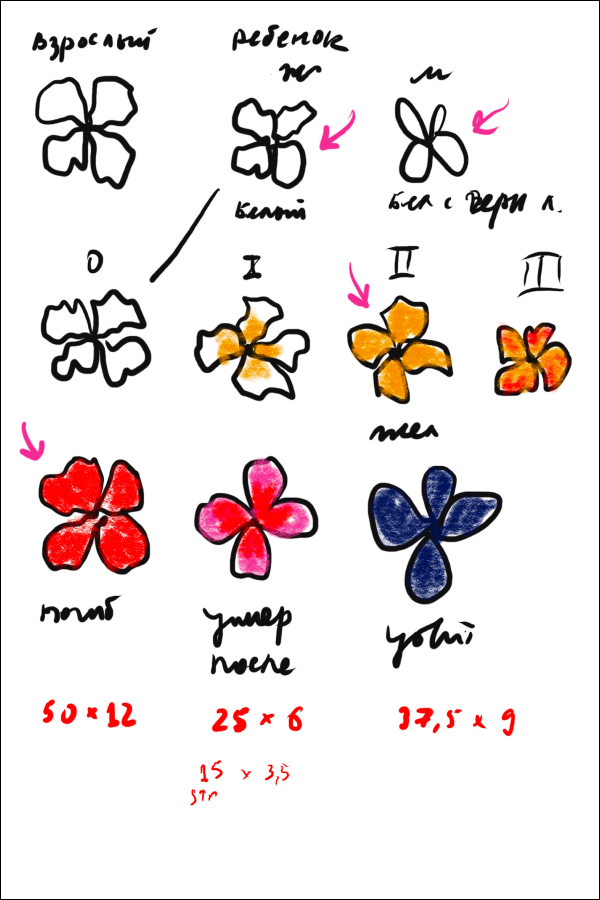 взрослый
ребенок
ж
м
белый
бел с
л.
0
I
II
III
жел
погиб
умер
после
убит
50 × 12
25 × 6
37,5 × 9
15 × 3,5
str